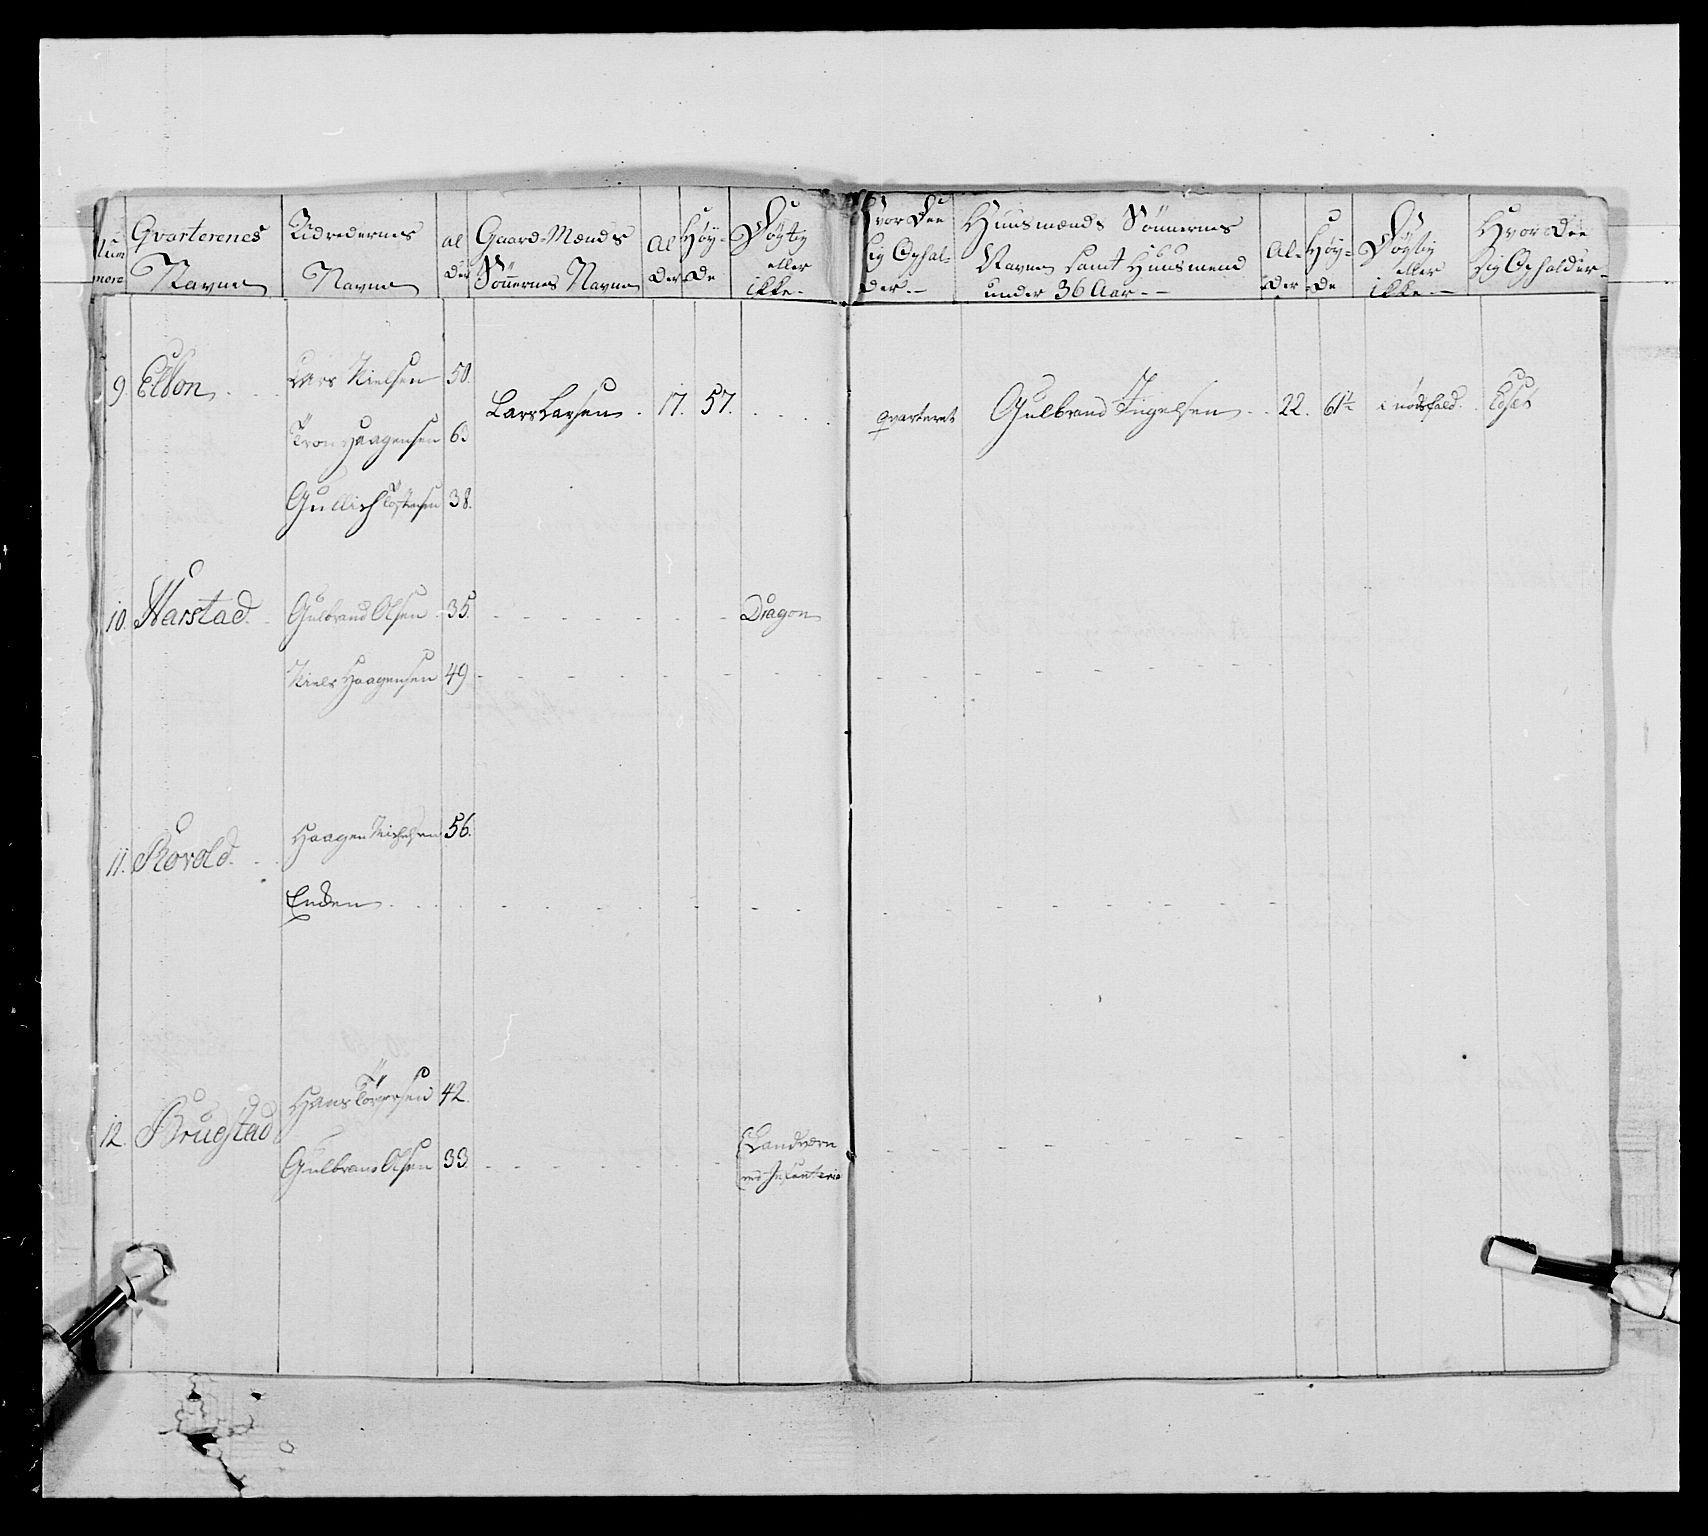 Num
mere
Qvarterenes
Navne
Udredernes
Navne
al
der
Gaard-Mænds
Sönnernes Navne
Al
der
Høy-
de
Døgtig
eller
ikke-
Hvor dee
sig Ophol-
der.-
Huusmænds Sönnernes
Navne samt Huusmend
under 36 Aar.-
Al-
der
Høy-
de
Døgtig
eller
ikke.-
Hvor dee
sig Opholder.
9. Eldon. Lars Nielsen 50.
Lars Larsen. 17. 57. qvarteret Gulbrand Ingelsen. 22. 61½ i nødsfald.
Tron Haagensen 63
Gullich Tostensen 38.
10. Harstad. Gulbrand Olsen 35. Dragon
Niels Haagensen 49
11. Rovold. Haagen Michelsen 56.
Enken
12. Brustad Hans Torersen 42.
Gulbrand Olsen 33. Landværn
ved Infanterie